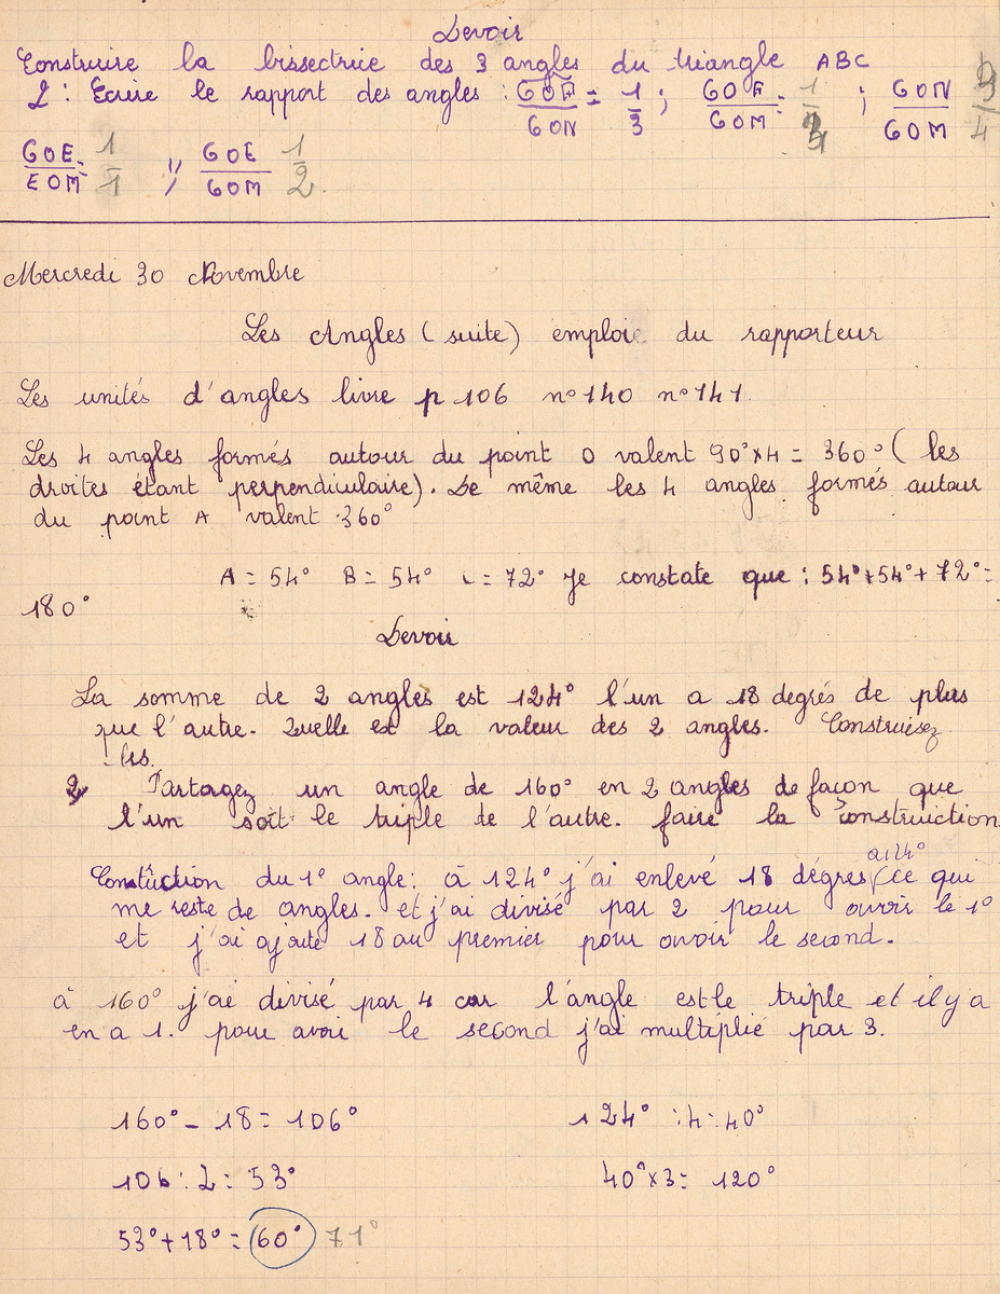 Devoir
Construire la bissectrice des 3 angles du triangle ABC
2 : Ecrire le rapport des angles : GOF/GON = 1/3 ; GOF/GOM = 1/4 ; GON/GOM 3/4
GOE/EOM = 1/1 ; GOE/GOM 1/2.
Mercredi 30 Novembre
Les Angles (suite) emploi du rapporteur
Les unités d'angles livre p 106 n° 140 n° 141
Les 4 angles formés autour du point O valent 90°x4 = 360° (les
droites étant perpendiculaire). De même les 4 angles formés autour
du point A valent 360°
A = 54° B = 54° C = 72° Je constate que : 54°+54°+72° =
180°
Devoir
La somme de 2 angles est 124° l'un a 18 degrés de plus
que l'autre. Quelle est la valeur des 2 angles. Construisez
-les.
2 Partagez un angle de 160° en 2 angles de façon que
l'un soit le triple de l'autre. faire la construction
a 124°
Constuction du 1° angle : à 124° j'ai enlevé 18 dégres (ce qui
me reste de angles. et j'ai divisé par 2 pour avoir le 1°
et j'ai ajouté 18 au premier pour avoir le second.
à 160° j'ai divisé par 4 car l'angle est le triple et il y a
en a 1. pour avoir le second j'ai multiplié par 3.
160° - 18 = 106° 124° : 4 = 40°
106 : 2 = 53° 40°x3 = 120°
53°+18° = 60° 71°